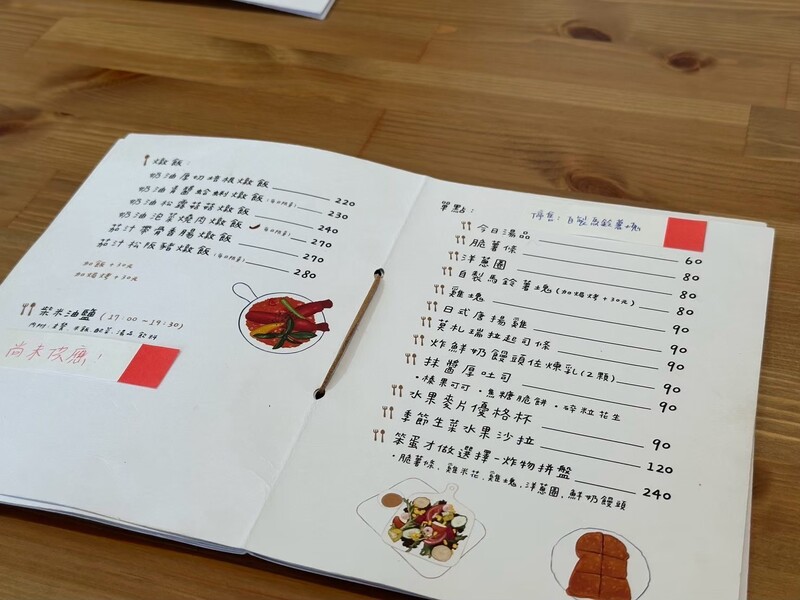 燉飯：
奶油厚切培根燉飯 220
奶油青醬蛤蜊燉飯 (每日限量) 230
奶油松露菇菇燉飯 240
奶油泡菜燒肉燉飯 (每日限量) 270
茄汁帶骨香腸燉飯 270
茄汁松阪豬燉飯 (每日限量) 280
加飯+30元
加焗烤+30元
柴米油鹽 (17:00-19:30)
尚未皮應！
單點：
停售：自製馬鈴薯塊
今日湯品 60
脆薯條 80
洋蔥圈 80
自製馬鈴薯塊 (加焗烤+30元) 80
雞塊 90
日式唐揚雞 90
莫札瑞拉起司條 90
炸鮮奶饅頭佐煉乳(2顆) 90
抹醬厚吐司 90
・榛果可可・焦糖脆餅・碎粒花生
水果麥片優格杯 90
季節生菜水果沙拉 120
笨蛋才做選擇-炸物拼盤 240
・脆薯條，雞米花，雞塊，洋蔥圈，鮮奶饅頭